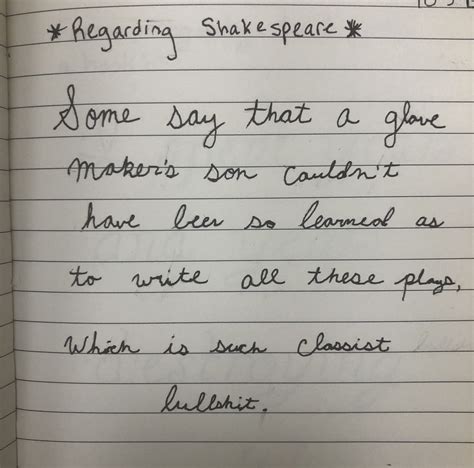 *Regarding Shakespeare*
Some say that a glove
maker's son couldn't
have been so learned as
to write all these plays,
Which is such classist
bullshit.